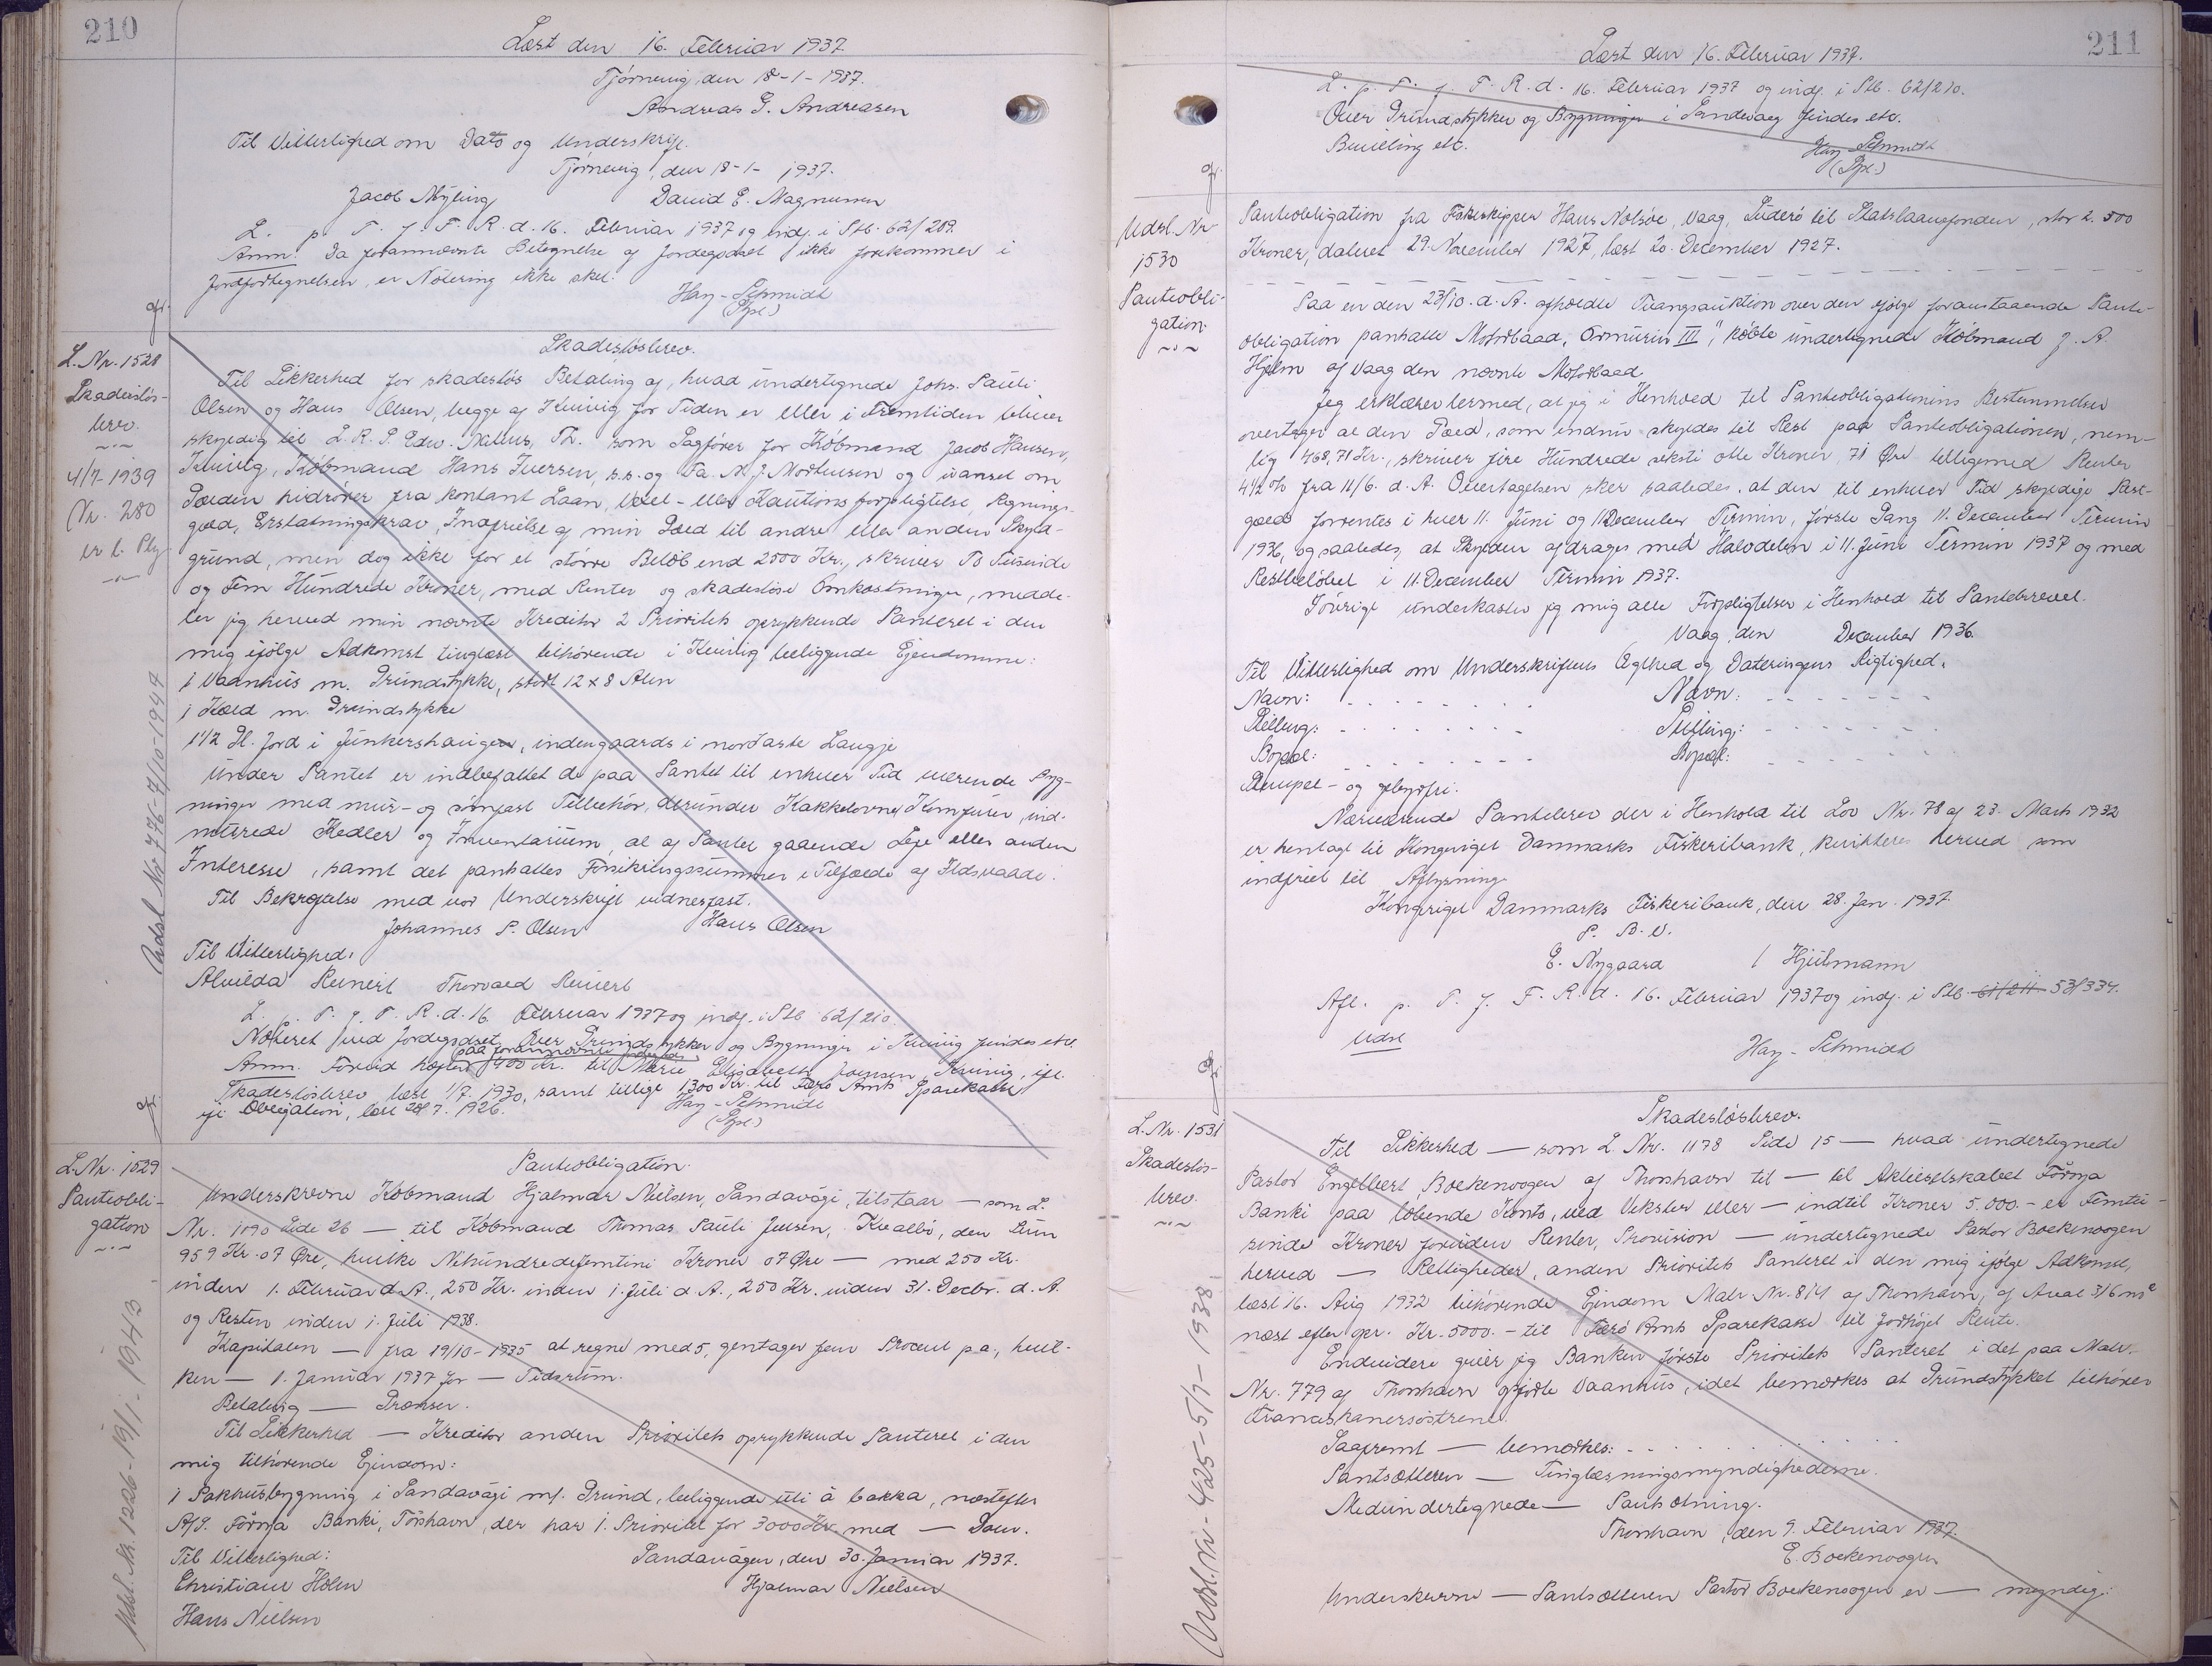 210
Læst den 16. Februar 1937.
Tjørnevig, den 18-1-1937.
Andreas G. Andreasen
Til Vitterlighed om Dato og Underskrift.
Tjørnevig, den 18-1-1937.
Jacob Mýling David E. Magnussen
L. p. T. f. F. R. d. 16. Februar 1937 og indf. i Skb. 62/209.
Anm. Da forannævnte Betegnelse af Jordegodset ikke forekommer i
Jordfortegnelsen, er Notering ikke sket.
Hay-Schmidt
L. Nr. 1528
Skadesløs-
brev.
4/7-1939
Nr. 280
Udsl. Nr. 776-7/10-1947
Skadesløsbrev.
Til Sikkerhed for skadesløs Betaling af, hvad undertegnede Johs. Pauli
Olsen og Hans Olsen, begge af Kvivig for Tiden er eller i Fremtiden bliver
skyldig til L. R. S. Edw. Mitens, Th. som Sagfører for Købmand Jacob Hansen,
Kvivig, Købmand Hans Iversen, s.s. og Fa. N. J. Mortensen og uanset om
Gælden hidrører fra kontant Laan, Vexel- eller Kautionsforpligtelse, Regnings-
gæld, Erstatningskrav, Indfrielse af min Gæld til andre eller anden Skyld-
grund, men dog ikke for et større Beløb end 2500 Kr., skriver To Tusinde
og Fem Hundrede Kroner, med Renter og skadesløse Omkostninger, medde-
ler jeg herved min nævnte Kreditor 2 Prioritets oprykkende Panteret i den
mig ifølge Adkomst tinglæst tilhørende i Kvivig beliggende Ejendomme:
1 Vaanhus m. Grundstykke, stort 12 x 8 Alen
1 Kæld m. Grundstykke
1 1/2 Sk. Jord i Junkershaugen, indengaards i nordaste Laugje
Under Pantet er indbefattet de paa Pantet til enhver Tid værende Byg-
ninger med mur- og sømfast Tilbehør, derunder Kakkelovne, Komfurer, ind-
murede Kedler og Inventarium, al af Pantet gaaende Leje eller anden
Interesse, samt det panthaftes Forsikringssummer i Tilfælde af Ildsvaade.
Til Bekræftelse med vor Underskrift vidnesfast.
Johannes P. Olsen Hans Olsen
Til Vitterlighed:
Alvilda Reinert Thorvald Reinert
L. p. T. f. F. R. d. 16. Februar 1937 og indf. i Skb. 62/210.
Noteret ved Jordegodset. Over Grundstykker og Bygninger i Kvivig findes etc.
paa forannævnte Jordegods
Anm. Forud hæfter 1400 Kr. til Marie Elisabeth Joensen, Kvivig, ifl.
Skadesløsbrev læst 1/7. 1930, samt tillige 1300 Kr. til Færø Amts Sparekasse
ifl. Obligation, læst 28/7. 1926.
Hay-Schmidt
L. Nr. 1529
Panteobli-
gation
Udsl. Nr. 1226-19/1-1943
Panteobligation.
Underskrevne Købmand Hjalmar Nielsen, Sandavági, tilstaar — som L.
Nr. 1090 Side 26 — til Købmand Thomas Pauli Jensen, Kvalbø, den Sum
959 Kr. 07 Øre, hvilke Nihundredefemtini Kroner 07 Øre — med 250 Kr.
inden 1. Februar d. A., 250 Kr. inden 1. Juli d. A., 250 Kr. inden 31. Decbr. d. A.
og Resten inden 1. Juli 1938.
Kapitalen — fra 19/10-1935 at regne med 5, gentager fem Procent p.a., hvil-
ken — 1. Januar 1937 for — Tidsrum.
Betaling — Grænser.
Til Sikkerhed — Kreditor anden Prioritets oprykkende Panteret i den
mig tilhørende Ejendom:
1 Pakhusbygning i Sandavági m/. Grund, beliggende úti á bakka, næstefter
A/S. Føroya Banki, Tórshavn, der har 1. Prioritet for 3000 Kr. med — Dom.
Til Vitterlighed: Sandavágur, den 30. Januar 1937.
Christian Holm Hjalmar Nielsen
Hans Nielsen
211
Læst den 16. Februar 1937.
L. p. T. f. F. R. d. 16. Februar 1937 og indf. i Skb. 62/210.
Over Grundstykker og Bygninger i Sandevaag findes etc.
Bevilling etc.
Hay-Schmidt
Udsl. Nr.
1530
Panteobli-
gation.
Panteobligation fra Fiskeskipper Hans Nolsøe, Vaag, Suderø til Statslaanefonden, stor 2.500
Kroner, dateret 29. November 1927, læst 20. December 1927.
Paa en den 23/10. d. A. afholdte Tvangsauktion over den ifølge foranstaaende Pante-
obligation panthafte Motorbaad, "Ormurin III", købte undertegnede Købmand J. A.
Hjelm af Vaag den nævnte Motorbaad.
Jeg erklærer hermed, at jeg i Henhold til Panteobligationens Bestemmelser
overtager al den Gæld, som endnu skyldes til Rest paa Panteobligationen, nem-
lig 468,71 Kr., skriver fire Hundrede seksti otte Kroner, 71 Øre tilligemed Renter
4 1/2 % fra 11/6. d. A. Overtagelsen sker saaledes, at den til enhver Tid skyldige Rest-
gæld forrentes i hver 11. Juni og 11 December Termin, første Gang 11. December Termin
1936, og saaledes, at Gælden afdrages med Halvdelen i 11. Juni Termin 1937 og med
Restbeløbet i 11. December Termin 1937.
Iøvrigt underkaster jeg mig alle Forpligtelser i Henhold til Pantebrevet.
Vaag, den December 1936.
Til Vitterlighed om Underskriftens Ægthed og Dateringens Rigtighed.
Navn: Navn:
Stilling: Stilling:
Bopæl: Bopæl:
Stempel- og gebyrfri.
Nærværende Pantebrev der i Henhold til Lov Nr. 78 af 23. Marts 1932
er henlagt til Kongeriget Danmarks Fiskeribank, kvitteres herved som
indfriet til Aflysning.
Kongeriget Danmarks Fiskeribank, den 28. Jan. 1937.
P. B. V.
E. Nygaard / Hjulmann
Afl. p. T. f. F. R. d. 16. Februar 1937 og indf. i Skb. 61/211 53/334.
Udsl
Hay-Schmidt
L. Nr. 1531
Skadesløs-
brev.
Udsl. Nr. 425-5/7-1938
Skadesløsbrev.
Til Sikkerhed — som L. Nr. 1178 Side 15 — hvad undertegnede
Pastor Engelbert Boekenoogen af Thorshavn til — til Aktieselskabet Føroya
Banki paa løbende Konto, ved Veksler eller — indtil Kroner 5.000.- er Femtu-
sinde Kroner foruden Renter, Provision — undertegnede Pastor Boekenoogen
herved — Rettigheder, anden Prioritets Panteret i den mig ifølge Adkomst,
læst 16. Aug 1932 tilhørende Ejendom Matr. Nr. 814 af Thorshavn, af Areal 316 m²
næst efter opr. Kr. 5000.- til Færø Amts Sparekasse til forhøjet Rente.
Endvidere giver jeg Banken første Prioritets Panteret i det paa Matr.
Nr. 779 af Thorshavn opførte Vaanhus, idet bemærkes at Grundstykket tilhører
Franciskanersøstrene.
Saafremt — bemærkes:
Pantsætteren — Tinglæsningsmyndighederne.
Medundertegnede — Pantsætning.
Thorshavn, den 9. Februar 1937.
E. Boekenoogen
Underskrevne — Pantsætteren Pastor Boekenoogen er — myndig.